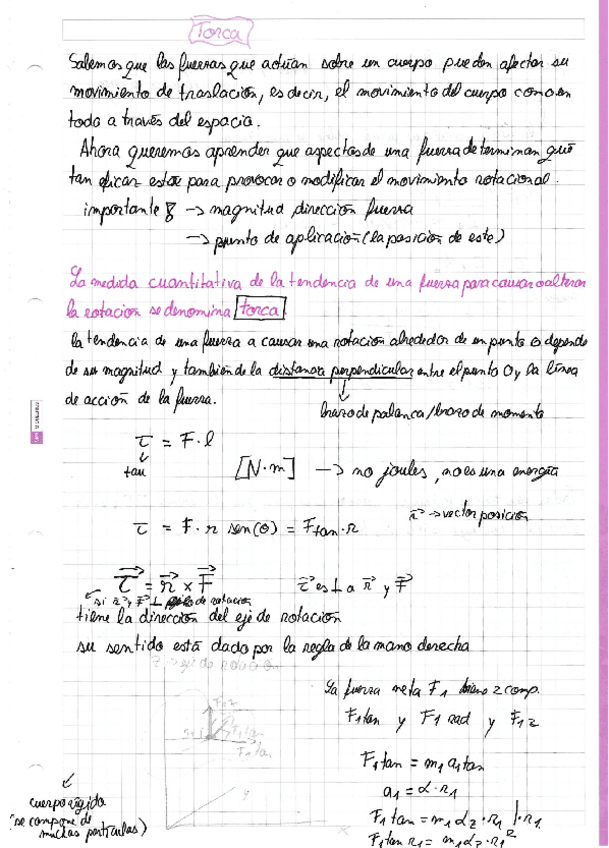 Torca
Sabemos que las fuerzas que actúan sobre un cuerpo pueden afectar su
movimiento de traslación, es decir, el movimiento del cuerpo como un
todo a través del espacio.
Ahora queremos aprender que aspectos de una fuerza determinan qué
tan eficaz esta para provocar o modificar el movimiento rotacional.
importante → magnitud dirección fuerza
→ punto de aplicación (la posición de este)
La medida cuantitativa de la tendencia de una fuerza para causar o alterar
la rotacion se denomina torca.
la tendencia de una fuerza a causar una rotación alrededor de un punto o depende
de su magnitud y también de la distancia perpendicular entre el punto O y la línea
de acción de la fuerza.
brazo de palanca/brazo de momento
τ = F·l
tau
[N·m] → no joules, no es una energía
r⃗ → vector posición
τ = F·r sen(θ) = Ftan·r
τ⃗ = r⃗ × F⃗
τ⃗ es ⊥ a r⃗ y F⃗
si r⃗ y F⃗ ⊥ eje de rotación
tiene la dirección del eje de rotación
su sentido está dado por la regla de la mano derecha
eje de rotación
F1z
F1tan
y
x
La fuerza neta F1 tiene z comp.
F1tan y F1rad y F1z
F1tan = m1 a1tan
a1 = α·r1
F1tan = m1 αz·r1 |·r1
F1tan r1 = m1 αz·r1²
cuerpo rígido
(se compone de
muchas partículas)